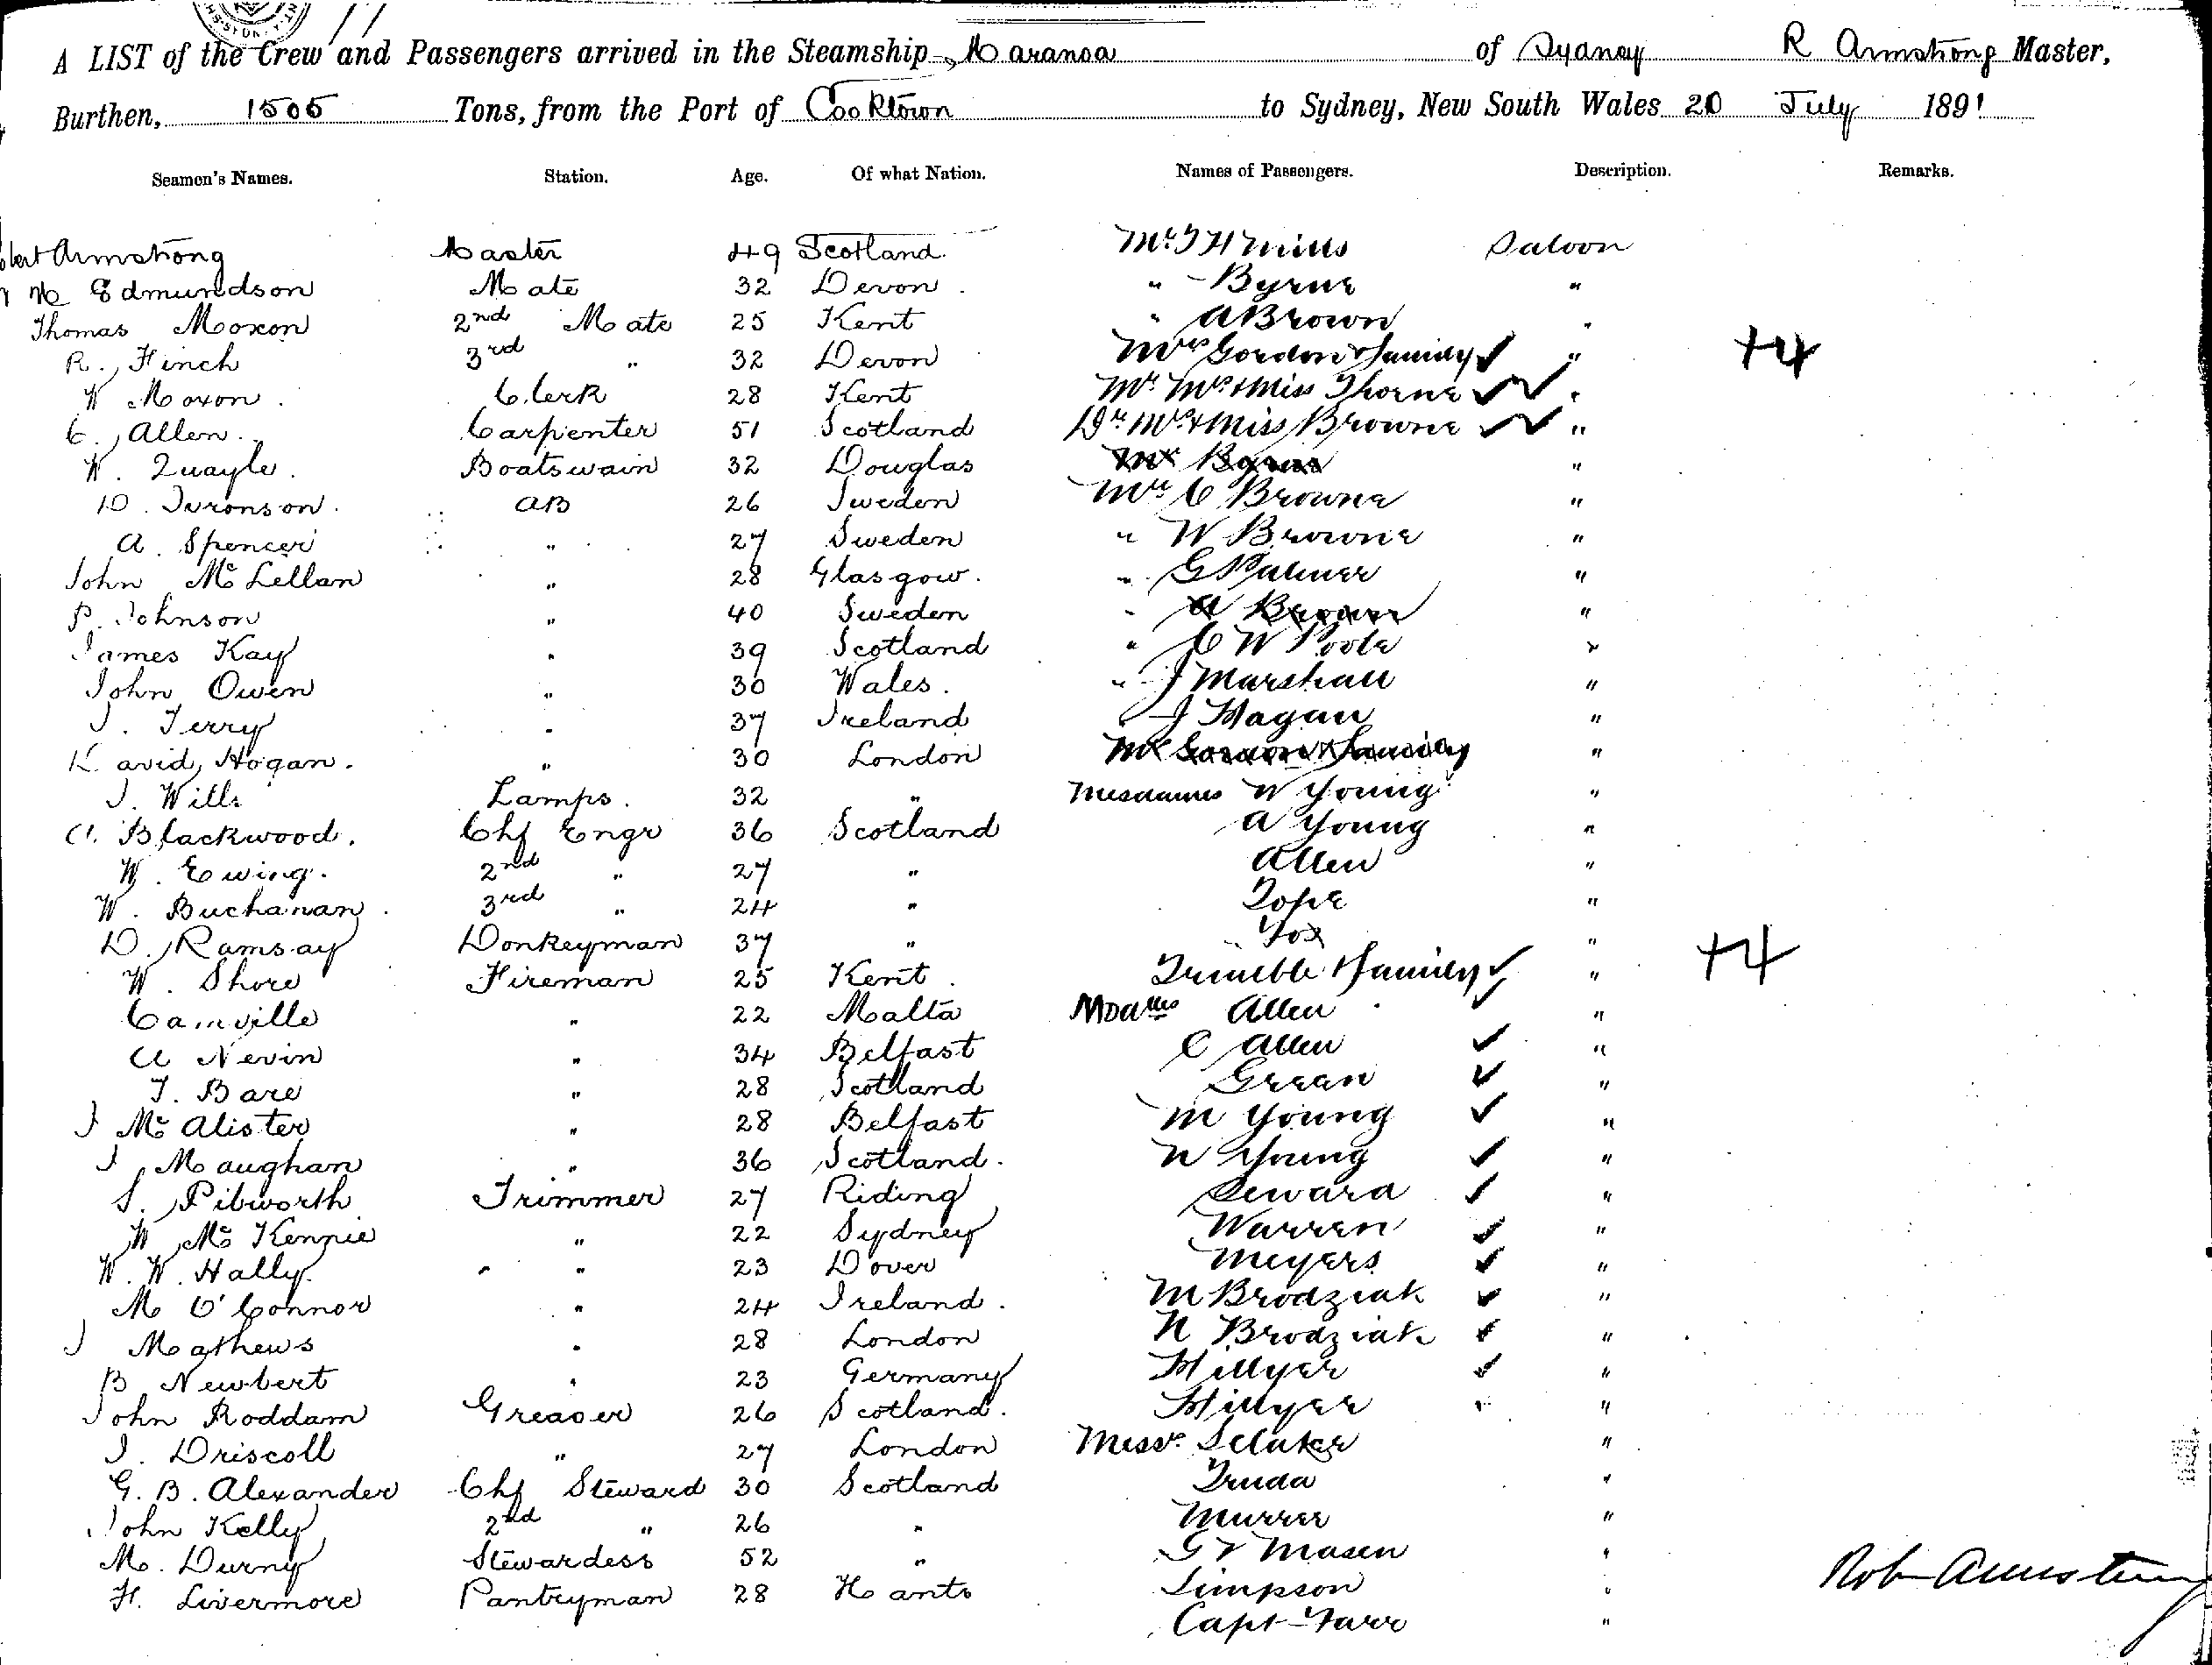 A LIST of the Crew and Passengers arrived in the Steamship Maranoa of Sydney R Armstrong Master,
Burthen, 1505 Tons, from the Port of Cooktown to Sydney, New South Wales 20 July 1891
Seamen's Names. Station. Age. Of what Nation. Names of Passengers. Description. Remarks.
Armstrong Master 49 Scotland. Mr J H Mills Saloon
Edmundson Mate 32 Devon. " Byrne "
Thomas Moxon 2nd Mate 25 Kent " A Brown "
R. Finch 3rd " 32 Devon Mrs Gordon & family " +4
W Moxon. Clerk 28 Kent Mr Mrs & Miss Thorne "
C. Allen. Carpenter 51 Scotland Dr Mrs & Miss Browne "
W. Quayle. Boatswain 32 Douglas "
D. Ivronson. AB 26 Sweden C Browne "
A. Spencer " 27 Sweden " W Browne "
John McLellan " 28 Glasgow. " G Palmer "
P. Johnson " 40 Sweden " A Brown "
James Kay " 39 Scotland " C W Poole "
John Owen " 30 Wales. " J Marshall "
J. Terry " 37 Ireland " J Hagan "
David Hogan. " 30 London Mr Gordon & Family "
J. Wills Lamps. 32 " Mesdames W Young "
A. Blackwood. Chf Engr 36 Scotland A Young "
W. Ewing. 2nd " 27 " Allen "
W. Buchanan. 3rd " 24 " Pope "
D. Ramsay Donkeyman 37 " Fox "
W. Shore Fireman 25 Kent. Trimble & family " +4
Camville " 22 Malta Mdlles Allen "
A Nevin " 34 Belfast C Allen "
T. Bare " 28 Scotland Green "
J McAlister " 28 Belfast M Young "
J Maughan " 36 Scotland. N Young "
S. Pibworth Trimmer 27 Riding Seward "
W McKennie " 22 Sydney Warren "
W. W. Hally. " 23 Dover Meyers "
M O'Connor " 24 Ireland. M Brodziak "
J Mathews " 28 London N Brodziak "
B Newbert " 23 Germany Hillyer "
John Roddam Greaser 26 Scotland. Hillyer "
J. Driscoll " 27 London Messrs Sclater "
G. B. Alexander Chf Steward 30 Scotland Truda "
John Kelly 2nd " 26 " Murrer "
M. Durny Stewardess 52 " Masen "
H. Livermore Pantryman 28 Hants Simpson "
Capt Farr "
Rob Armstrong